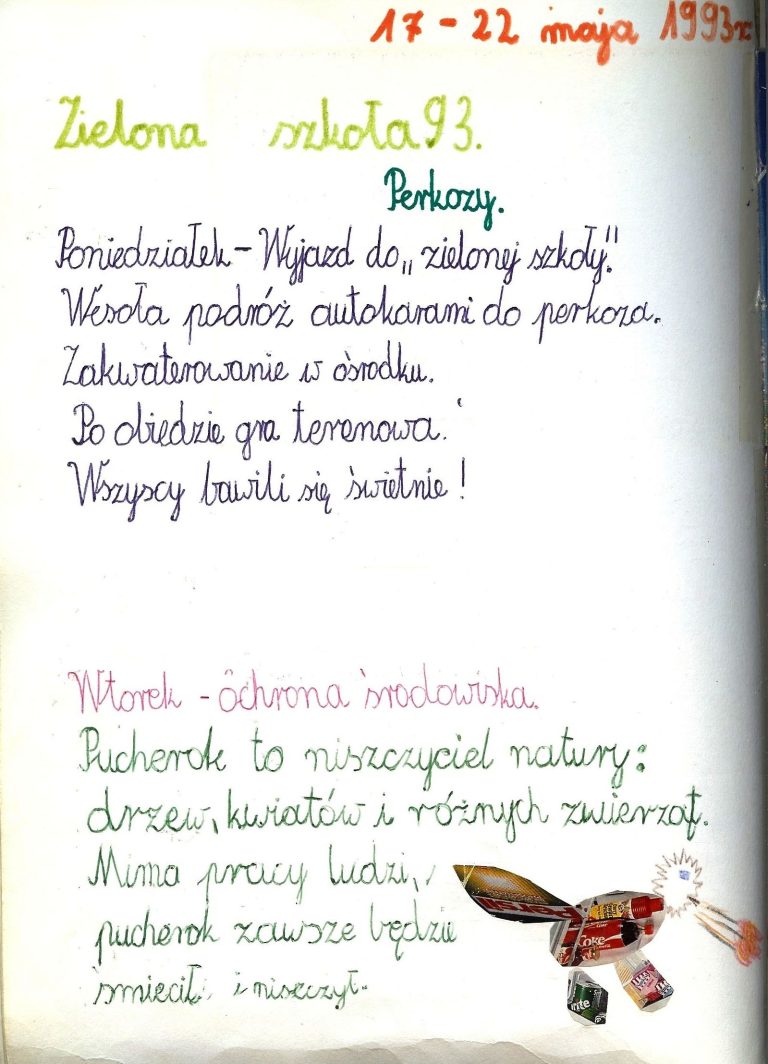 17 - 22 maja 1993r
Zielona szkoła 93.
Perkozy.
Poniedziałek - Wyjazd do „zielonej szkoły".
Wesoła podróż autokarami do perkoza.
Zakwaterowanie w ośrodku.
Po obiedzie gra terenowa.
Wszyscy bawili się świetnie!
Wtorek - ochrona środowiska.
Pucherok to niszczyciel natury:
drzew, kwiatów i różnych zwierząt.
Mimo pracy ludzi,
pucherok zawsze będzie
śmiecił i niszczył.
Coke